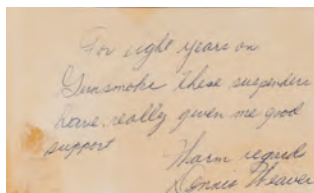 For eight years on
Gunsmoke these suspenders
have really given me good
support
Warm regards
Dennis Weaver